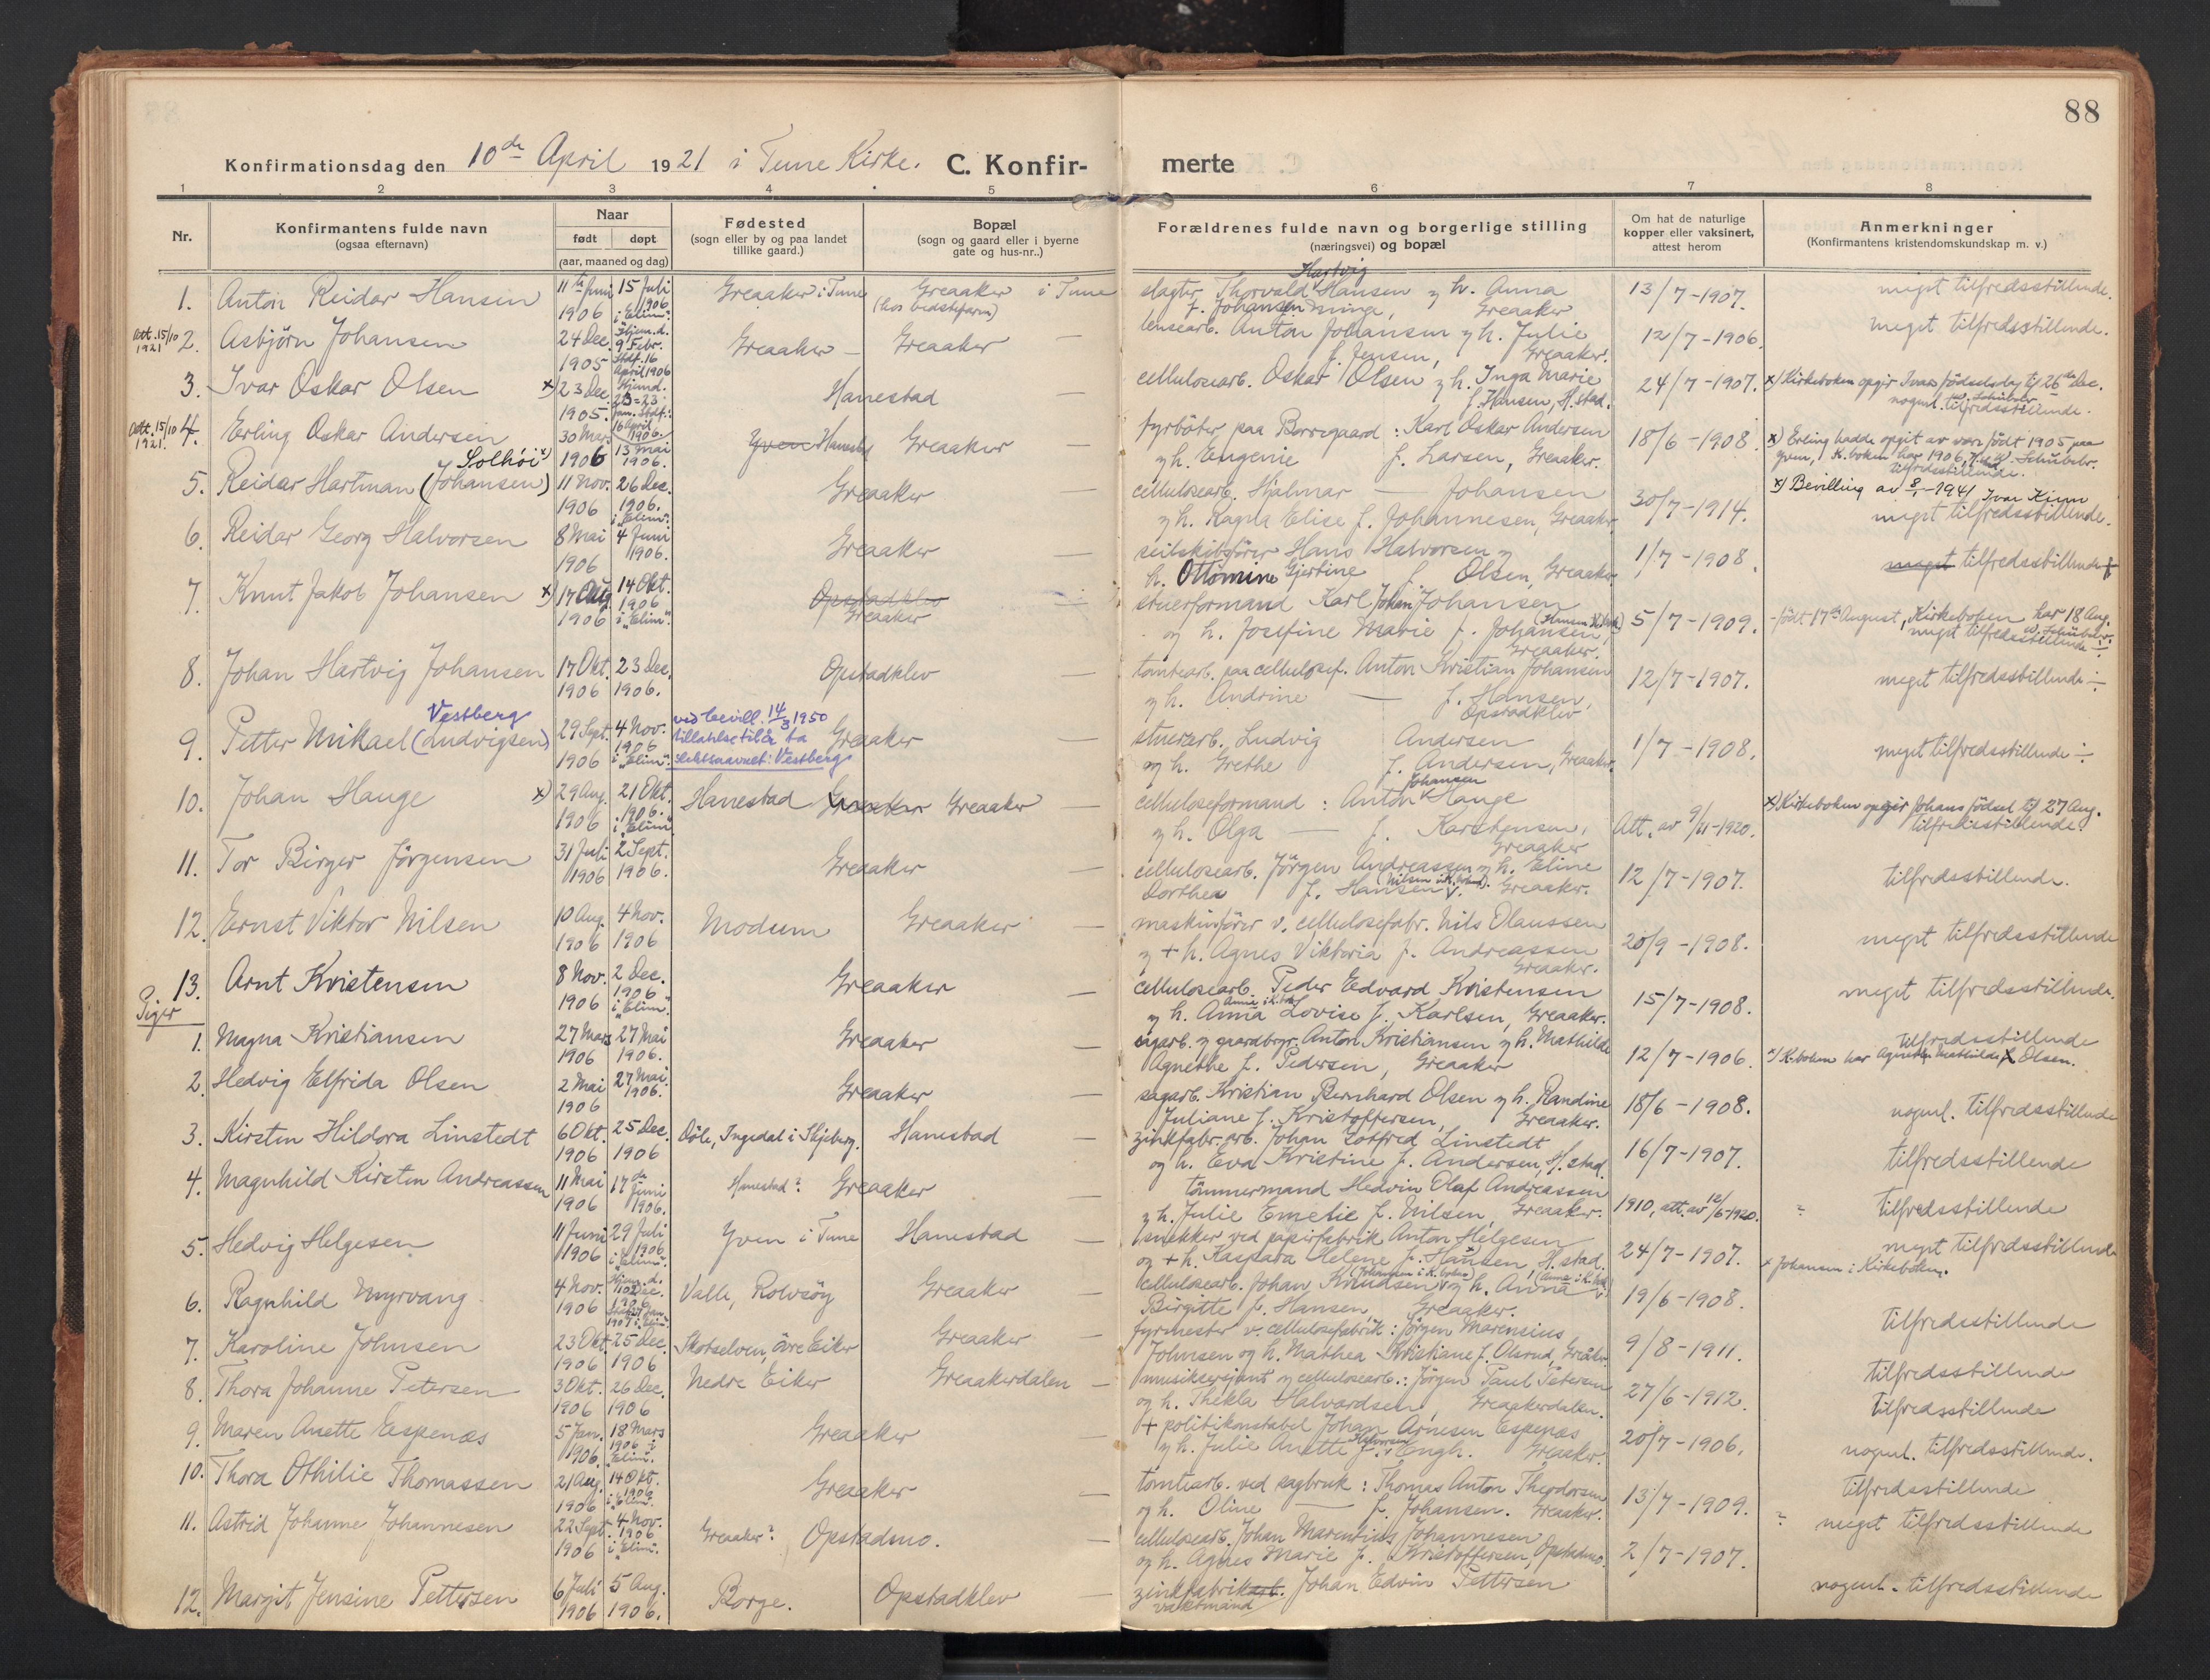 88
Konfirmationsdag den 10de April 1921 i Tune Kirke. C. Konfir- merte
1 2 3 4 5 6 7 8
Nr.
Konfirmantens fulde navn
(ogsaa efternavn)
Naar
født døpt
(aar, maaned og dag)
Fødested
(sogn eller by og paa landet
tillike gaard.)
Bopæl
(sogn og gaard eller i byerne
gate og hus-nr..)
Forældrenes fulde navn og borgerlige stilling
(næringsvei) og bopæl
Om hat de naturlige
kopper eller vaksinert,
attest herom
Anmerkninger
(Konfirmantens kristendomskundskap m. v.)
1. Anton Reidar Hansen 11te Juni 1906 15 Juli 1906 i "Elim". Greaaker i Tune Greaaker i Tune
(hos bedstefaren)
slagter Thorvald Hartvig Hansen og h. Anna
f. Johansen Greaaker
13/7-1907. meget tilfredsstillende.
Att. 15/10 1921 2. Asbjørn Johansen 24 Dec. 1905 Hjem.d. 9 Febr. Stdf. 16 April 1906 Greaaker - Greaaker -
lensearb. Anton Johansen og h. Julie
f. Jensen, Greaaker.
12/7-1906. meget tilfredsstillende.
3. Ivar Oskar Olsen x) 23 Dec. 1905. Hanestad -
cellulosearb. Oskar Olsen og h. Inga Marie
f. Hansen, H.stad.
24/7-1907. x) Kirkeboken opgir Ivars fødselsdag til 26de Dec.
nogenl. tilfredsstillende.
Att. 15/10 1921. 4. Erling Oskar Andersen 30 Mars 1906 13 Mai 1906. Yven Hanestad Greaaker -
fyrbøter paa Borregaard: Karl Oskar Andersen
og h. Eugenie f. Larsen, Greaaker.
18/6-1908. x) Erling hadde opgit at være født 1905 paa
Yven, K.boken har 1906,
tilfredsstillende.
5. Reidar Hartman (Johansen) Solhøi x) 11 Nov. 1906 26 Dec. 1906. i "Elim". Greaaker -
cellulosearb. Hjalmar - Johansen
og h. Ragna Elise f. Johannesen, Greaaker
30/7-1914. x) Bevilling av 8/1-1941 Ivar Kjenn
meget tilfredsstillende.
6. Reidar Georg Halvorsen 8 Mai 1906 4 Juni 1906. Greaaker -
seilskibsfører Hans Halvorsen og
h. Ottomine Gjertine f. Olsen, Greaaker
1/7-1908. meget tilfredsstillende
7. Knut Jakob Johansen x) 17 Aug 1906 14 Okt. 1906 i "Elim". Opstadklev
Greaaker
stuerformand Karl Johan Johansen
og h. Josefine Marie f. Johansen
Greaaker.
5/7-1909. - født 17de August, Kirkeboken har 18 Aug.
meget tilfredsstillende
8. Johan Hartvig Johansen 17 Okt. 1906 23 Dec. 1906. Opstadklev -
tomtearb. paa cellulosef. Anton Kristian Johansen
og h. Andrine - f. Hansen,
Opstadklev
12/7-1907. meget tilfredsstillende
9. Petter Mikael (Ludvigsen) Vestberg 29 Sept. 1906 4 Nov. 1906 i "Elim". ved bevill. 14/3 1950
tillatelse til å ta
slektsnavnet: Vestberg.
Greaaker -
stuerarb. Ludvig Andersen
og h. Grethe f. Andersen, Greaaker.
1/7-1908. meget tilfredsstillende
10. Johan Hauge x) 29 Aug. 1906 21 Okt. 1906. i "Elim". Hanestad Greaaker Greaaker -
celluloseformand: Anton Johansen Hauge
og h. Olga - f. Karstensen,
Greaaker
Att. av 9/11-1920. x) Kirkeboken opgir Johans fødsel til 27 Aug.
tilfredsstillende.
11. Tor Birger Jørgensen 31 Juli 1906 2 Sept. 1906. Greaaker -
cellulosearb. Jørgen Andreassen og h. Eline
Dorthea f. Hansen (Nilsen i K.boken). Greaaker.
12/7-1907. tilfredsstillende.
12. Ernst Viktor Nilsen 10 Aug. 1906 4 Nov. 1906 Modum Greaaker -
maskinfører v. cellulosefabr. Nils Olaussen
og + h. Agnes Viktoria f. Andreassen
Greaaker.
20/9-1908. meget tilfredsstillende
13. Arnt Kristensen 8 Nov. 1906 2 Dec. 1906 i "Elim". Greaaker -
cellulosearb. Peder Edvard Kristensen
og h. Anna Lovise f. Karlsen, Greaaker.
15/7-1908. meget tilfredsstillende.
Piger
1. Magna Kristiansen 27 Mars 1906 27 Mai 1906. Greaaker -
sagarb. og gaardbrgr. Anton Kristiansen og h. Mathilde
Agnethe f. Pedersen, Greaaker
12/7-1906. tilfredsstillende
x) K.boken har Agnethe Mathilde f. Olsen.
2. Hedvig Elfrida Olsen 2 Mai 1906 27 Mai. 1906. Greaaker -
sagarb. Kristian Bernhard Olsen og h. Randine
Juliane f. Kristoffersen, Greaaker.
18/6-1908. nogenl. tilfredsstillende
3. Kirsten Hildora Linstedt 6 Okt. 1906 25 Dec. 1906 Døle, Ingedal i Skjeberg. Hanestad -
zinkfabr. arb. Johan Gotfred Linstedt
og h. Eva Kristine f. Andersen, H.stad.
16/7-1907. tilfredsstillende
4. Magnhild Kirsten Andreassen 11 Mai 1906 17de Juni 1906. Hanestad? Greaaker -
tømmermand Hedvin Olaf Andreassen
og h. Julie Emelie f. Nilsen, Greaaker.
1910, att. av 12/6-1920. tilfredsstillende
5. Hedvig Helgesen 11 Juni 1906 29 Juli 1906 i "Elim". Yven i Tune Hanestad -
snekker ved papirfabrik Anton Helgesen
og + h. Kaspara Helene f. Hansen, H.stad.
24/7-1907. meget tilfredsstillende
x Johansen i Kirkeboken.
6. Ragnhild Myrvang 4 Nov. 1906 Valle, Rolvsøy Greaaker -
cellulosearb. Johan Knudsen (Johansen i K.boken) og h. Anna
Birgitte f. Hansen, Greaaker.
19/6-1908. tilfredsstillende
7. Karoline Johnsen 23 Okt. 1906 25 Dec. 1906 Skotselven, øvre Eiker Greaaker -
fyrmester v. cellulosefabrik: Jørgen Marensius
Johnsen og h. Mathea Kristiane f. Olsrud, Greaaker
9/8-1911. tilfredsstillende
8. Thora Johanne Petersen 3 Okt. 1906 26 Dec. 1906 Nedre Eiker Greaakerdalen -
musiksersjant og cellulosearb.: Jørgen Paul Petersen
og h. Thekla Halvardsen, Greaakerdalen.
27/6-1912. tilfredsstillende
9. Maren Anette Espenæs 5 Jan. 1906. 18 Mars 1906 i "Elim". Greaaker -
+ politikonstabel Johan Arnesen Espenæs
og h. Julie Anette f. Engh. Greaaker.
20/7-1906. nogenl. tilfredsstillende.
10. Thora Othilie Thomassen 21 Aug. 1906 14 Okt. 1906 i "Elim". Greaaker -
tomtearb. ved sagbruk: Thomas Anton Theodorsen
og h. Oline - f. Johansen. Greaaker.
13/7-1909. tilfredsstillende
11. Astrid Johanne Johannesen 22 Sept. 1906 4 Nov. 1906 i "Elim". Greaaker? Opstadmo. -
cellulosearb. Johan Marentius Johannesen
og h. Agnes Marie f. Kristoffersen, Opstadmo.
2/7-1907. meget tilfredsstillende
12. Margit Jensine Pettersen 6 Juli 1906 5 Aug. 1906. Borge. Opstadklev -
zinkfabrikarb. Johan Edvin Pettersen
vaktmand
nogenl. tilfredsstillende